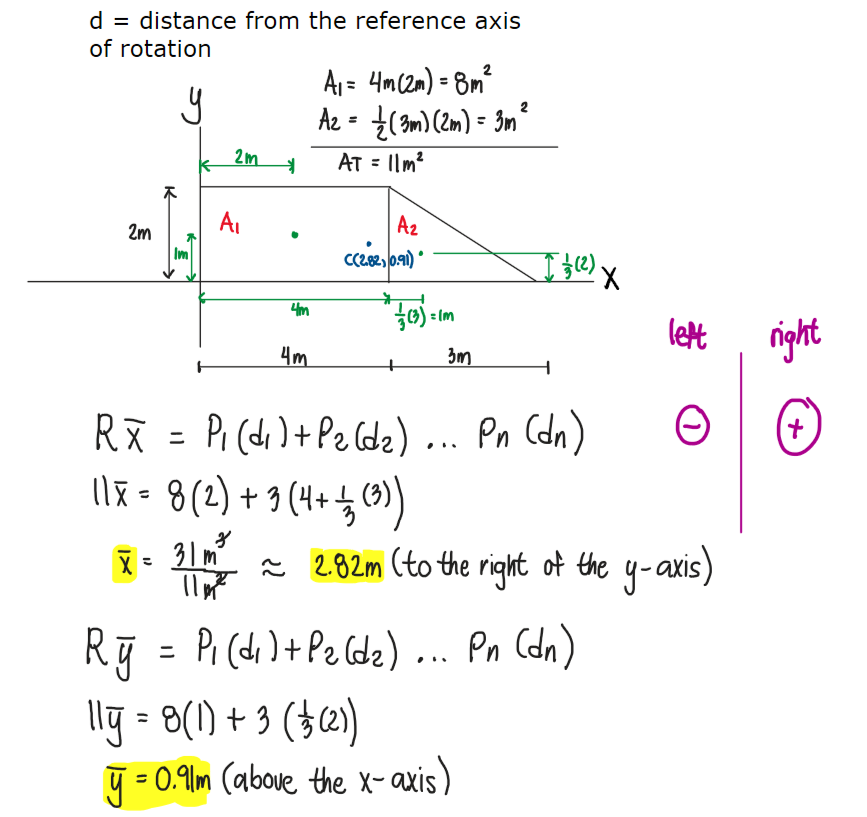 d = distance from the reference axis
of rotation
A₁ = 4m(2m) = 8m²
A₂ = ½(3m)(2m) = 3m²
AT = 11m²
y
2m
2m
A₁
A₂
1m
C(2.82, 0.91)
⅓(2)
X
4m
⅓(3) = 1m
4m
3m
left
right
−
+
R x̅ = P₁(d₁) + P₂(d₂) ... Pn (dn)
11x̅ = 8(2) + 3(4+⅓(3))
x̅ = 31m³/11m² ≈ 2.82m (to the right of the y-axis)
R y̅ = P₁(d₁) + P₂(d₂) ... Pn (dn)
11y̅ = 8(1) + 3(⅓(2))
y̅ = 0.91m (above the x-axis)